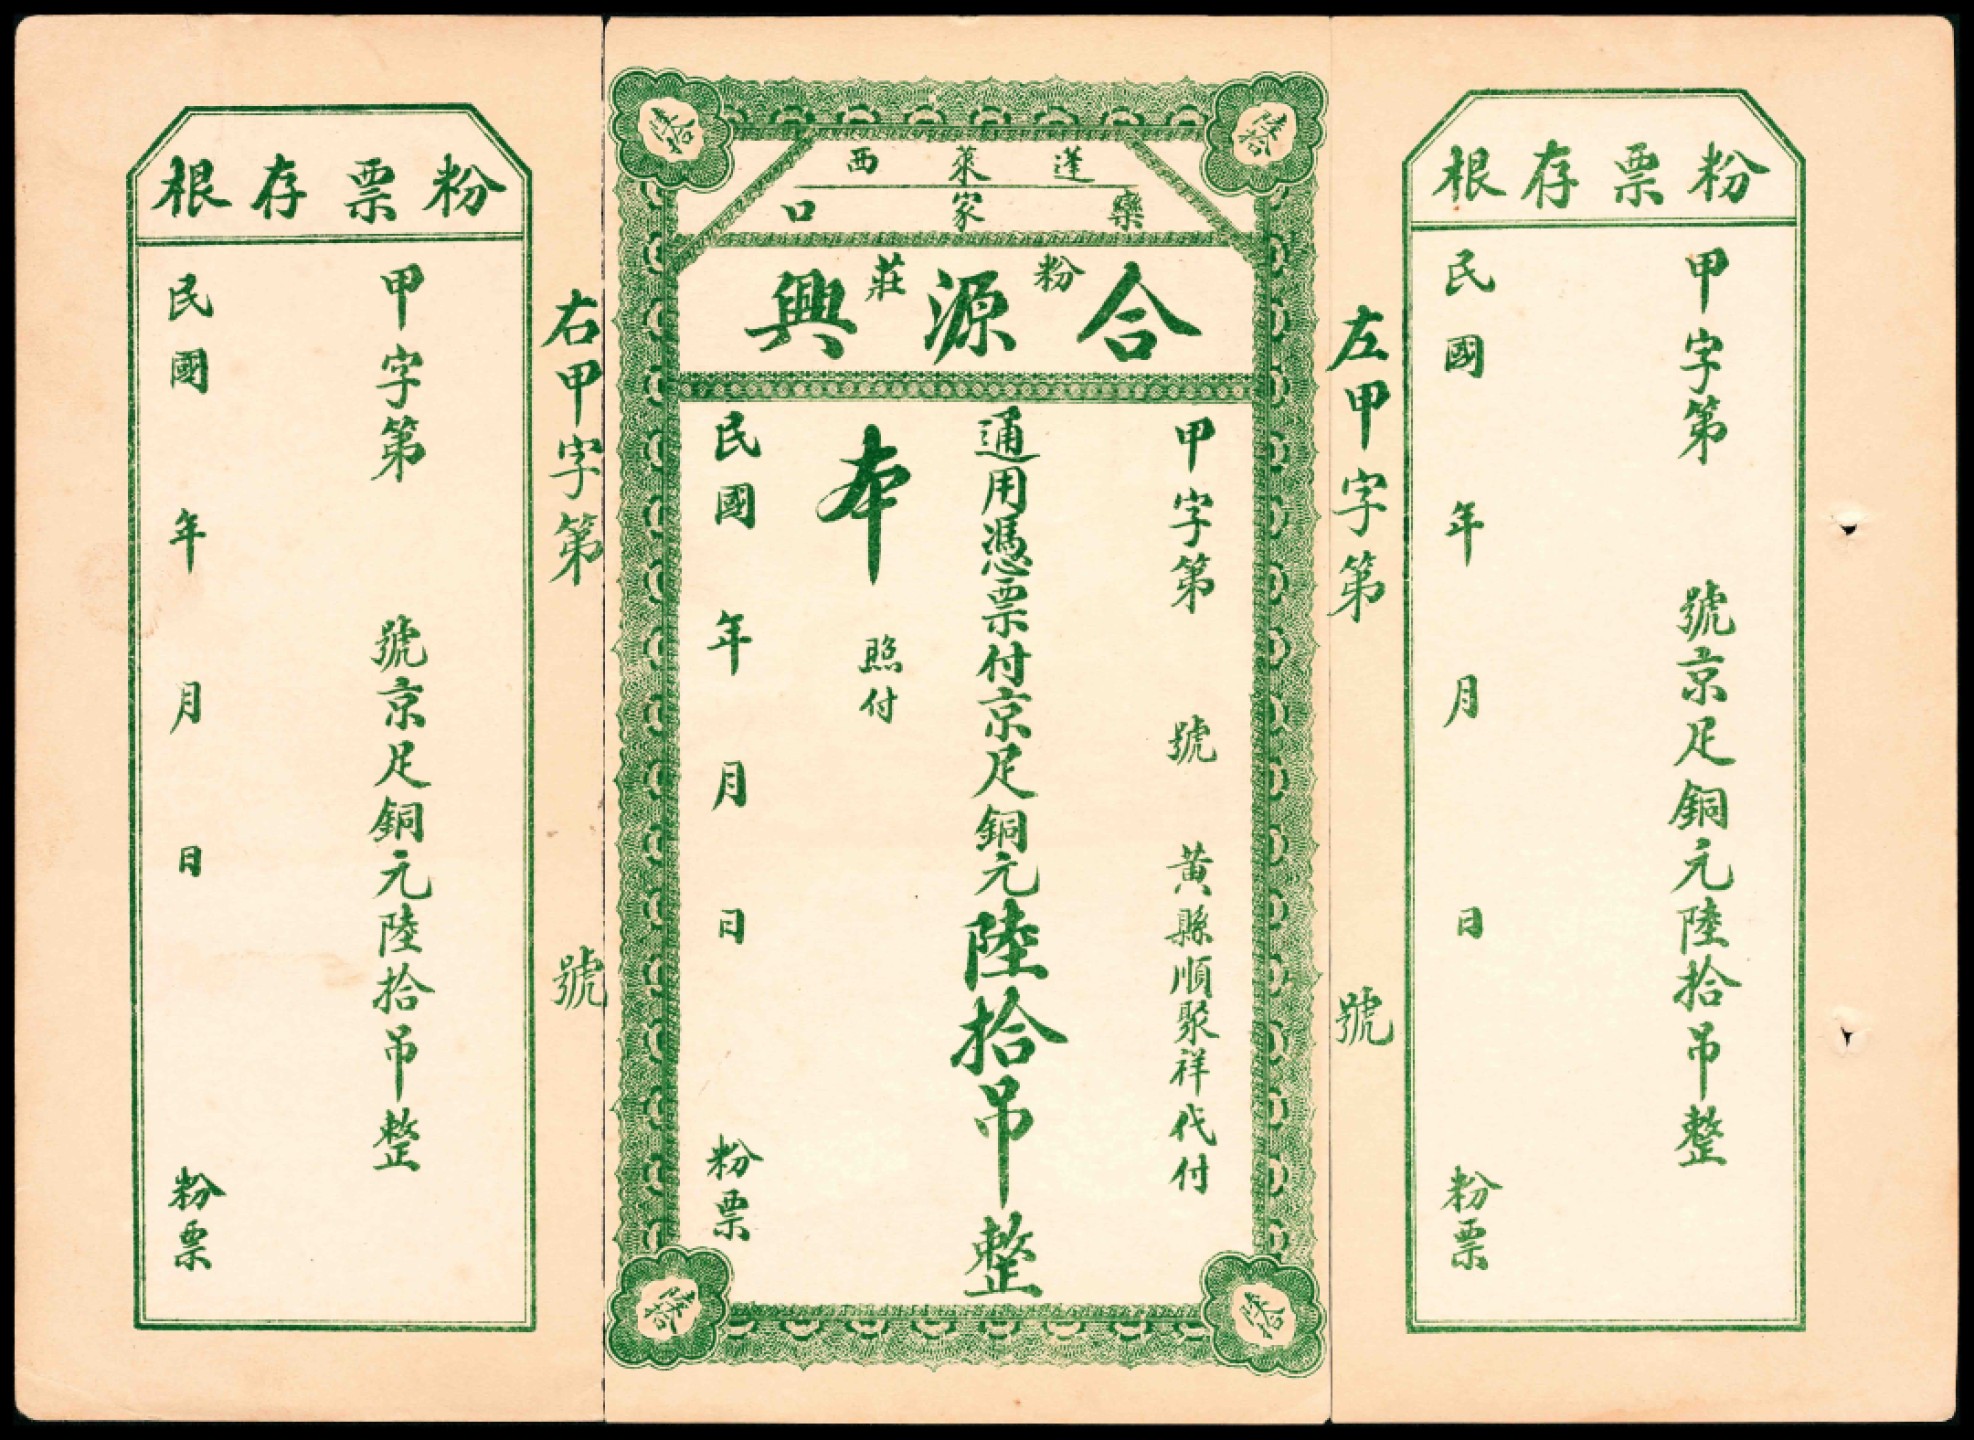 粉票存根
甲字第　號京足銅元陸拾吊整
民國　年　月　日　粉票
左甲字第　號
陸拾
陸拾
蓬萊西
欒家口
合源興
粉莊
甲字第　號　黃縣順聚祥代付
通用憑票付京足銅元陸拾吊整
本　照付
民國　年　月　日　粉票
陸拾
陸拾
右甲字第　號
粉票存根
甲字第　號京足銅元陸拾吊整
民國　年　月　日　粉票